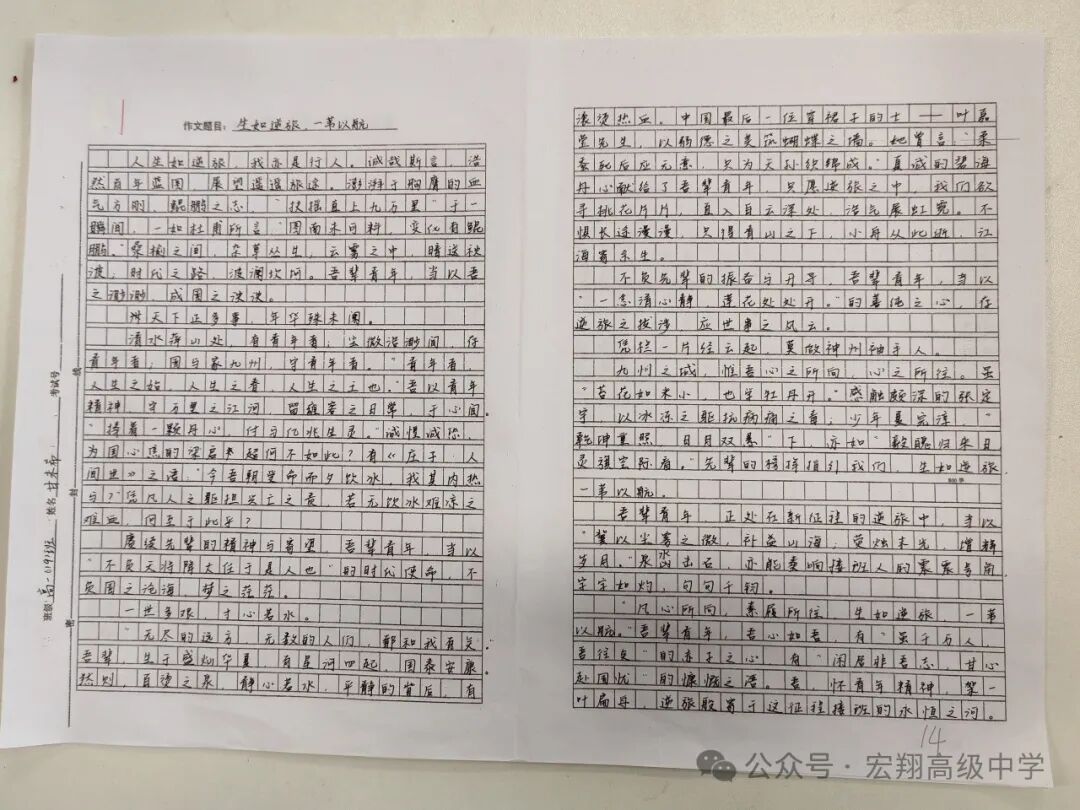 作文题目：生如逆旅，一苇以航
人生如逆旅，我亦是行人。诚哉斯言，浩
然百年蓝图，展望遥遥旅途。澎湃于胸膺的血
气方刚，鲲鹏之志，“扶摇直上九万里”于一
瞬间，一如杜甫所言“图南未可料，变化有鲲
鹏。”桑榆之间，杂草丛生，云雾之中，暗送秧
渡，时代之路，波澜坎坷。吾辈青年，当以吾
之渺渺，成国之泱泱。
天下正多事，年华殊未阑。
清水萍山处，有青年者；尘微浩渺间，任
青年者；国与家九州，守青年者。“青年者，
人生之始，人生之春，人生之王也。”吾以青年
精神，守万里之江河，留雄奇之日常，于心间
“捧着一颗丹心，付与亿兆生灵。”诚惶诚恐，
为国心焦的梁启超何不如此？有《庄子·人
间世》之语：“今吾朝受命而夕饮冰，我其内热
与？”凭凡人之躯担兴亡之责，若无饮冰难凉之
难血，何至于此乎？
赓续先辈的精神与寄望，吾辈青年，当以
“不负天将降大任于是人也”的时代使命，不
负国之沧海，梦之茫茫。
一世多艰，寸心若水。
“无尽的远方，无数的人们，都和我有关。”
吾辈，生于盛灿华夏，有星河四起，国泰安康。
然则，百烫之泉，静心若水，平静的背后，有
滚烫热血。中国最后一位穿裙子的士——叶嘉
莹先生，以弱德之美筑蝴蝶之墙。她曾言“柔
蚕死后应无憾，只为天孙织锦成。”真诚的碧海
丹心献给了吾辈青年，只愿逆旅之中，我们欲
寻桃花片片，直入白云深处，浩气展虹霓。不
惧长途漫漫，只得青山之下，小舟从此逝，江
海寄余生。
不负先辈的振臂与开导，吾辈青年，当以
“一念清心静，莲花处处开。”的善纯之心，任
逆旅之拔涉，应世事之风云。
凭栏一片经云起，莫做神州袖手人。
九州之域，惟吾心之所向，心之所往。虽
“苔花如米小，也学牡丹开。”感触颇深的张定
宇，以冰冻之躯抗病痛之毒；少年夏完淳，“
乾坤其照，日月双悬”下，亦如“毅魄归来日，
灵旗空际看。”先辈的榜样指引我们，生如逆旅，
800字
一苇以航。
吾辈青年，正处在新征程的逆旅中，当以
“冀以尘雾之微，补益山海；荧烛末光，增辉
岁月。”泉水击石，亦能奏响接班人的震震号角，
字字如灼，句句千钧。
“凡心所向，素履所往，生如逆旅，一苇
以航。”吾辈青年，吾心如吾，有“虽千万人，
吾往矣”的赤子之心，有“闲居非吾志，甘心
赴国忧”的慷慨之语。吾，怀青年精神，架一
叶扁舟，逆旅般寄于这征程接班的永恒之河。
14
考试号
姓名
班级 高一(19)班
密
封
线
公众号·宏翔高级中学